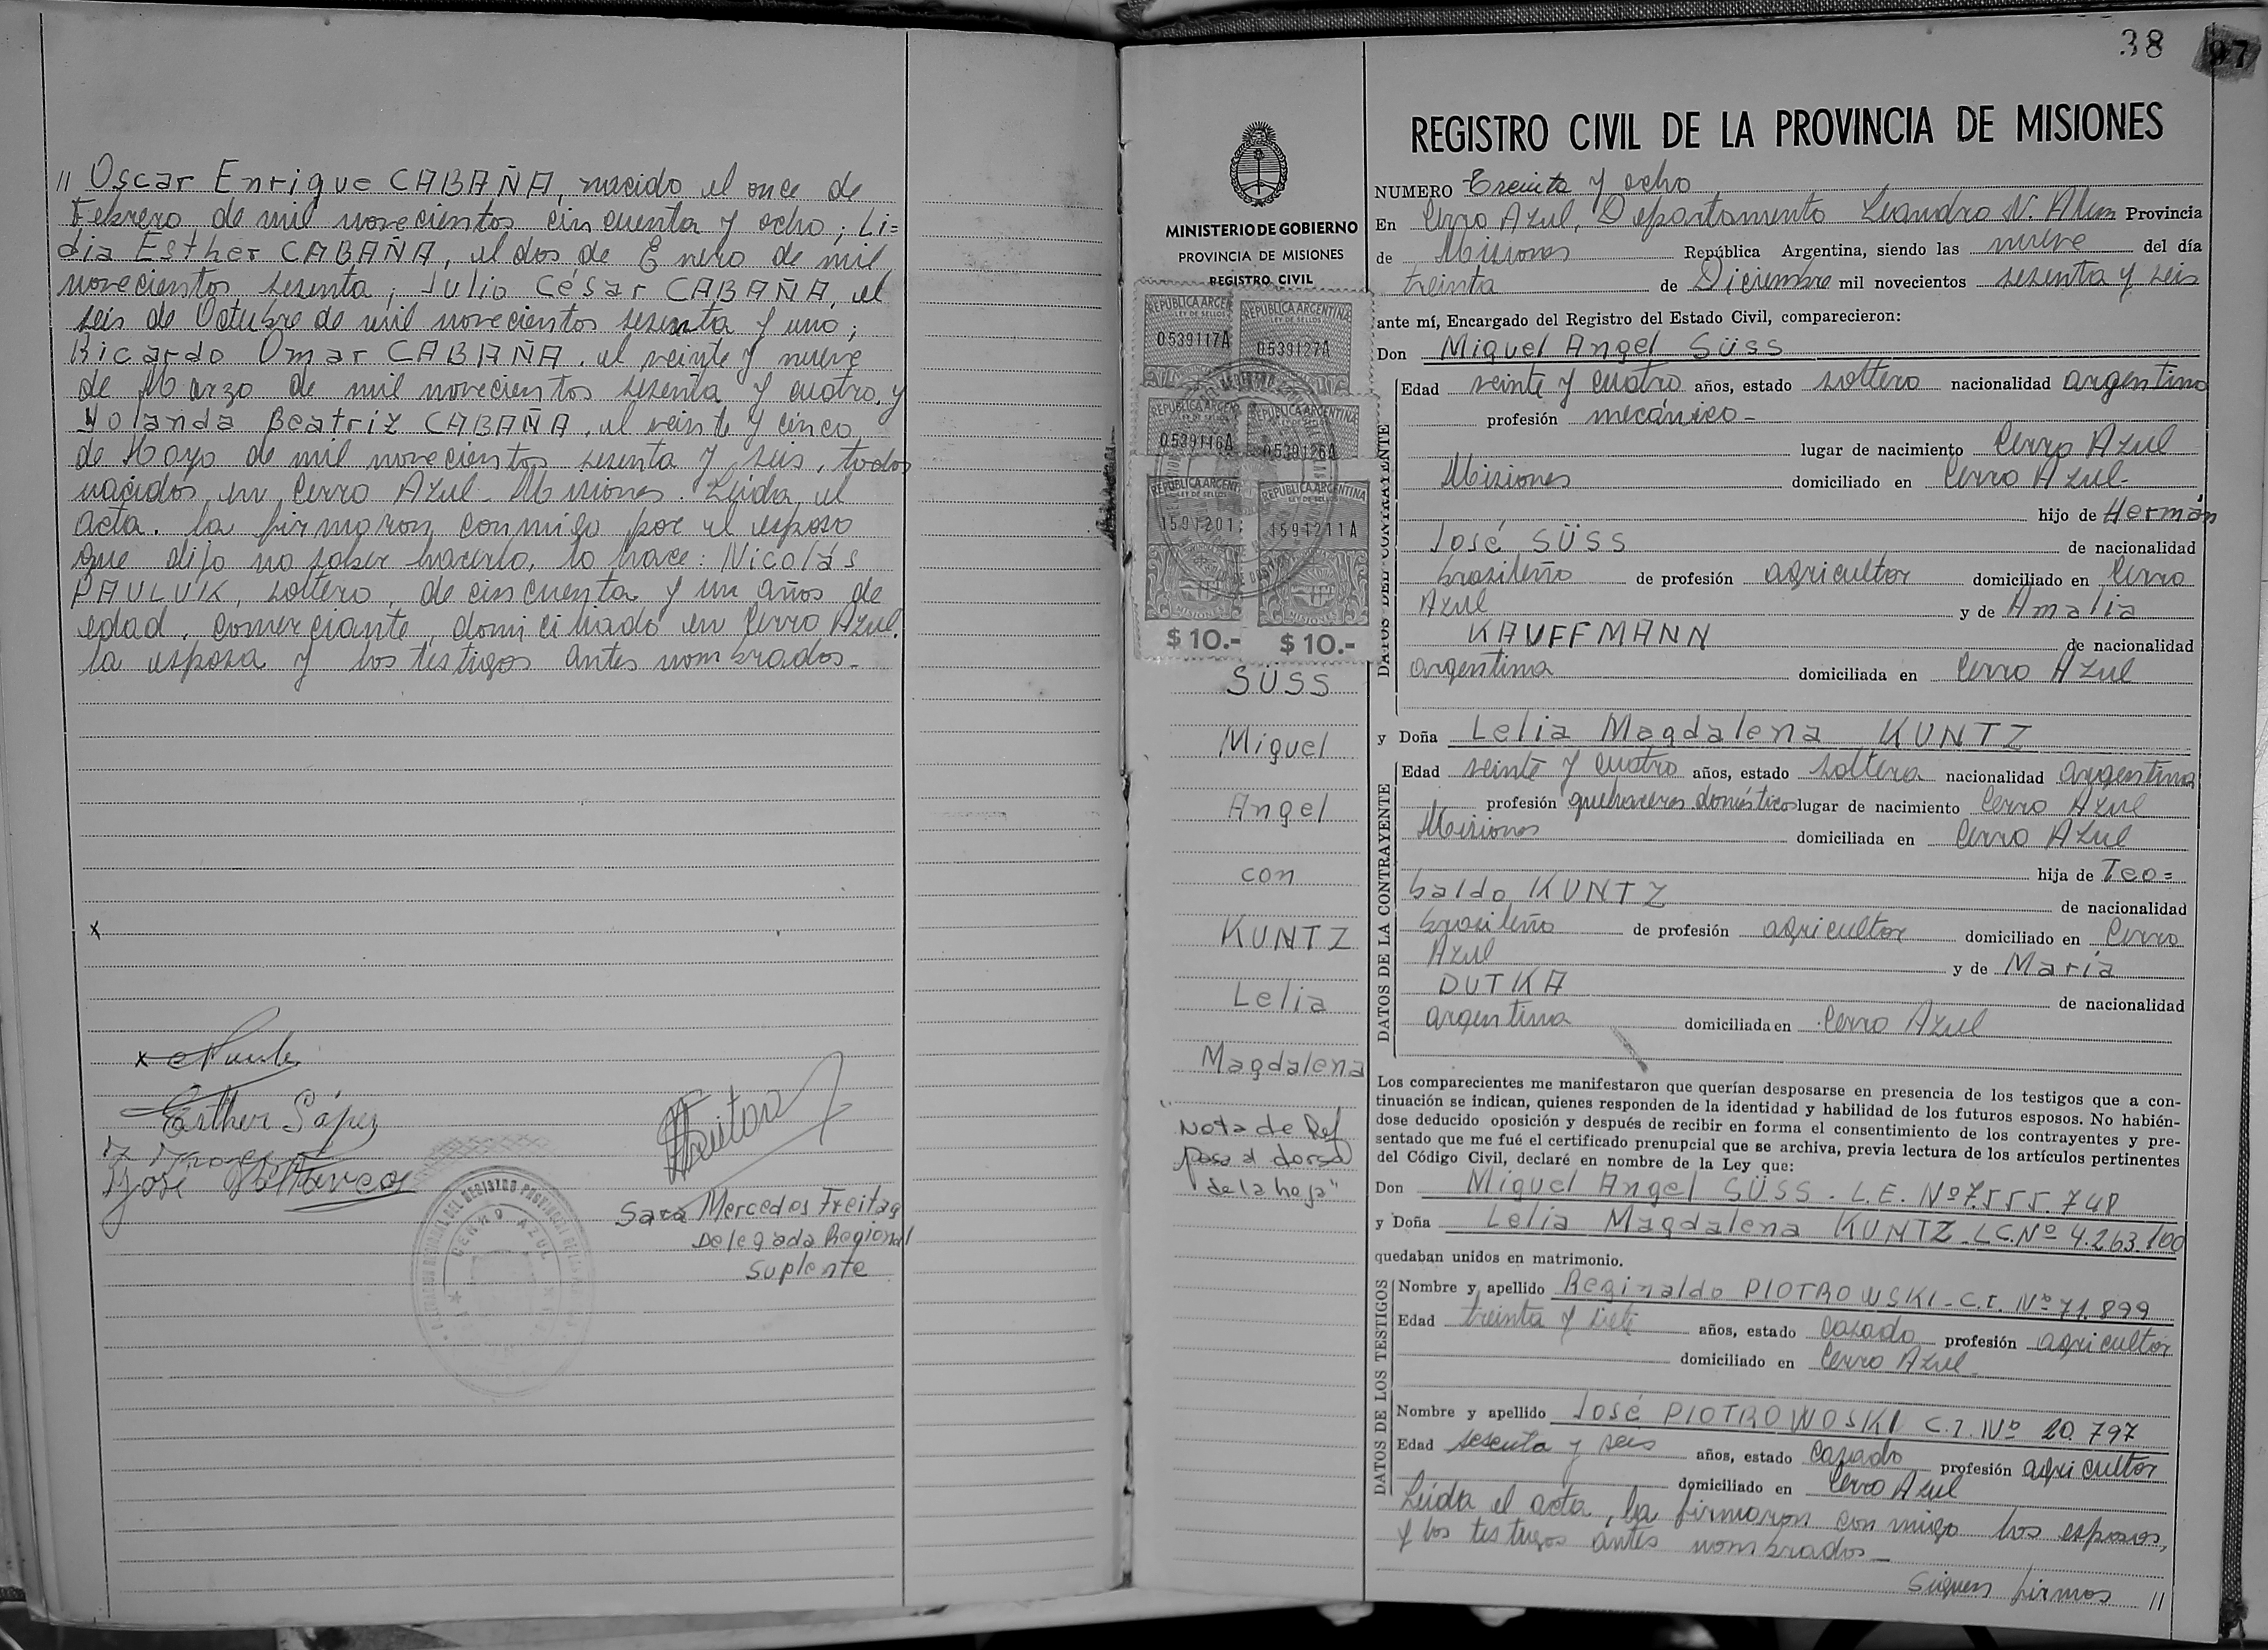 // Oscar Enrique CABAÑA, nacido el once de
Febrero de mil novecientos cincuenta y ocho; Li=
dia Esther CABAÑA, el dos de Enero de mil
novecientos sesenta; Julio César CABAÑA, el
seis de Octubre de mil novecientos sesenta y uno;
Ricardo Omar CABAÑA, el veinte y nueve
de Marzo de mil novecientos sesenta y cuatro, y
Yolanda Beatriz CABAÑA, el veinte y cinco
de Mayo de mil novecientos sesenta y seis, todos
nacidos en Cerro Azul - Misiones. Leída el
acta, la firmaron conmigo por el esposo
que dijo no saber hacerlo, lo hace: Nicolás
PAULUK, soltero, de cincuenta y un años de
edad, comerciante, domiciliado en Cerro Azul,
la esposa y los testigos antes nombrados.-
x
x
Esther López
José
Sara Mercedes Freitag
Delegada Regional
Suplente
CERRO AZUL
38
97
MINISTERIO DE GOBIERNO
PROVINCIA DE MISIONES
REGISTRO CIVIL
REPUBLICA ARGEN
LEY DE SELLOS
0539117A
REPUBLICA ARGENTINA
LEY DE SELLOS
0539127A
REPUBLICA ARGEN
0539116A
REPUBLICA ARGENTINA
0539126A
REPUBLICA ARGENT
LEY DE SELLOS
1591201
REPUBLICA ARGENTINA
LEY DE SELLOS
1591211A
MISIONES
MISIONES
$10.-
$10.-
SÜSS
Miguel
Angel
con
KUNTZ
Lelia
Magdalena
"Nota de Ref
pasa al dorso
de la hoja"
REGISTRO CIVIL DE LA PROVINCIA DE MISIONES
NUMERO Treinta y ocho
En Cerro Azul, Departamento Leandro N. Alem Provincia
de Misiones República Argentina, siendo las nueve del día
treinta de Diciembre mil novecientos sesenta y seis
ante mí, Encargado del Registro del Estado Civil, comparecieron:
Don Miguel Angel SÜSS
DATOS DEL CONTRAYENTE
Edad veinte y cuatro años, estado soltero nacionalidad argentino
profesión mecánico -
lugar de nacimiento Cerro Azul
Misiones domiciliado en Cerro Azul-
hijo de Hermán
José SÜSS de nacionalidad
brasileño de profesión agricultor domiciliado en Cerro
Azul y de Amalia
KAUFFMANN de nacionalidad
argentina domiciliada en Cerro Azul
y Doña Lelia Magdalena KUNTZ
DATOS DE LA CONTRAYENTE
Edad veinte y cuatro años, estado soltera nacionalidad argentina
profesión quehaceres domésticos lugar de nacimiento Cerro Azul
Misiones domiciliada en Cerro Azul
hija de Teo=
baldo KUNTZ de nacionalidad
brasileño de profesión agricultor domiciliado en Cerro
Azul y de María
DUTKA de nacionalidad
argentina domiciliada en Cerro Azul
Los comparecientes me manifestaron que querían desposarse en presencia de los testigos que a con-
tinuación se indican, quienes responden de la identidad y habilidad de los futuros esposos. No habién-
dose deducido oposición y después de recibir en forma el consentimiento de los contrayentes y pre-
sentado que me fué el certificado prenupcial que se archiva, previa lectura de los artículos pertinentes
del Código Civil, declaré en nombre de la Ley que:
Don Miguel Angel SÜSS. L.E. Nº 7.555.748
y Doña Lelia Magdalena KUNTZ - L.C. Nº 4.263.100
quedaban unidos en matrimonio.
DATOS DE LOS TESTIGOS
Nombre y apellido Reginaldo PIOTROWSKI - C.I. Nº 71.899
Edad treinta y siete años, estado casado profesión agricultor
domiciliado en Cerro Azul-
Nombre y apellido José PIOTROWOSKI C.I. Nº 20.797
Edad sesenta y seis años, estado casado profesión agricultor
domiciliado en Cerro Azul
Leída el acta, la firmaron conmigo los esposos,
y los testigos antes nombrados -
Siguen firmas //